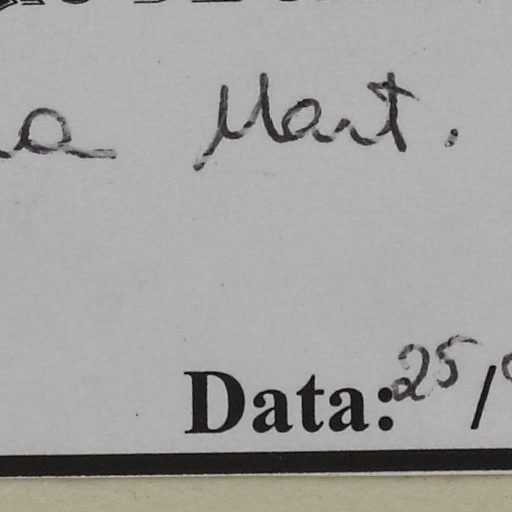 a Mart.
Data: 25/